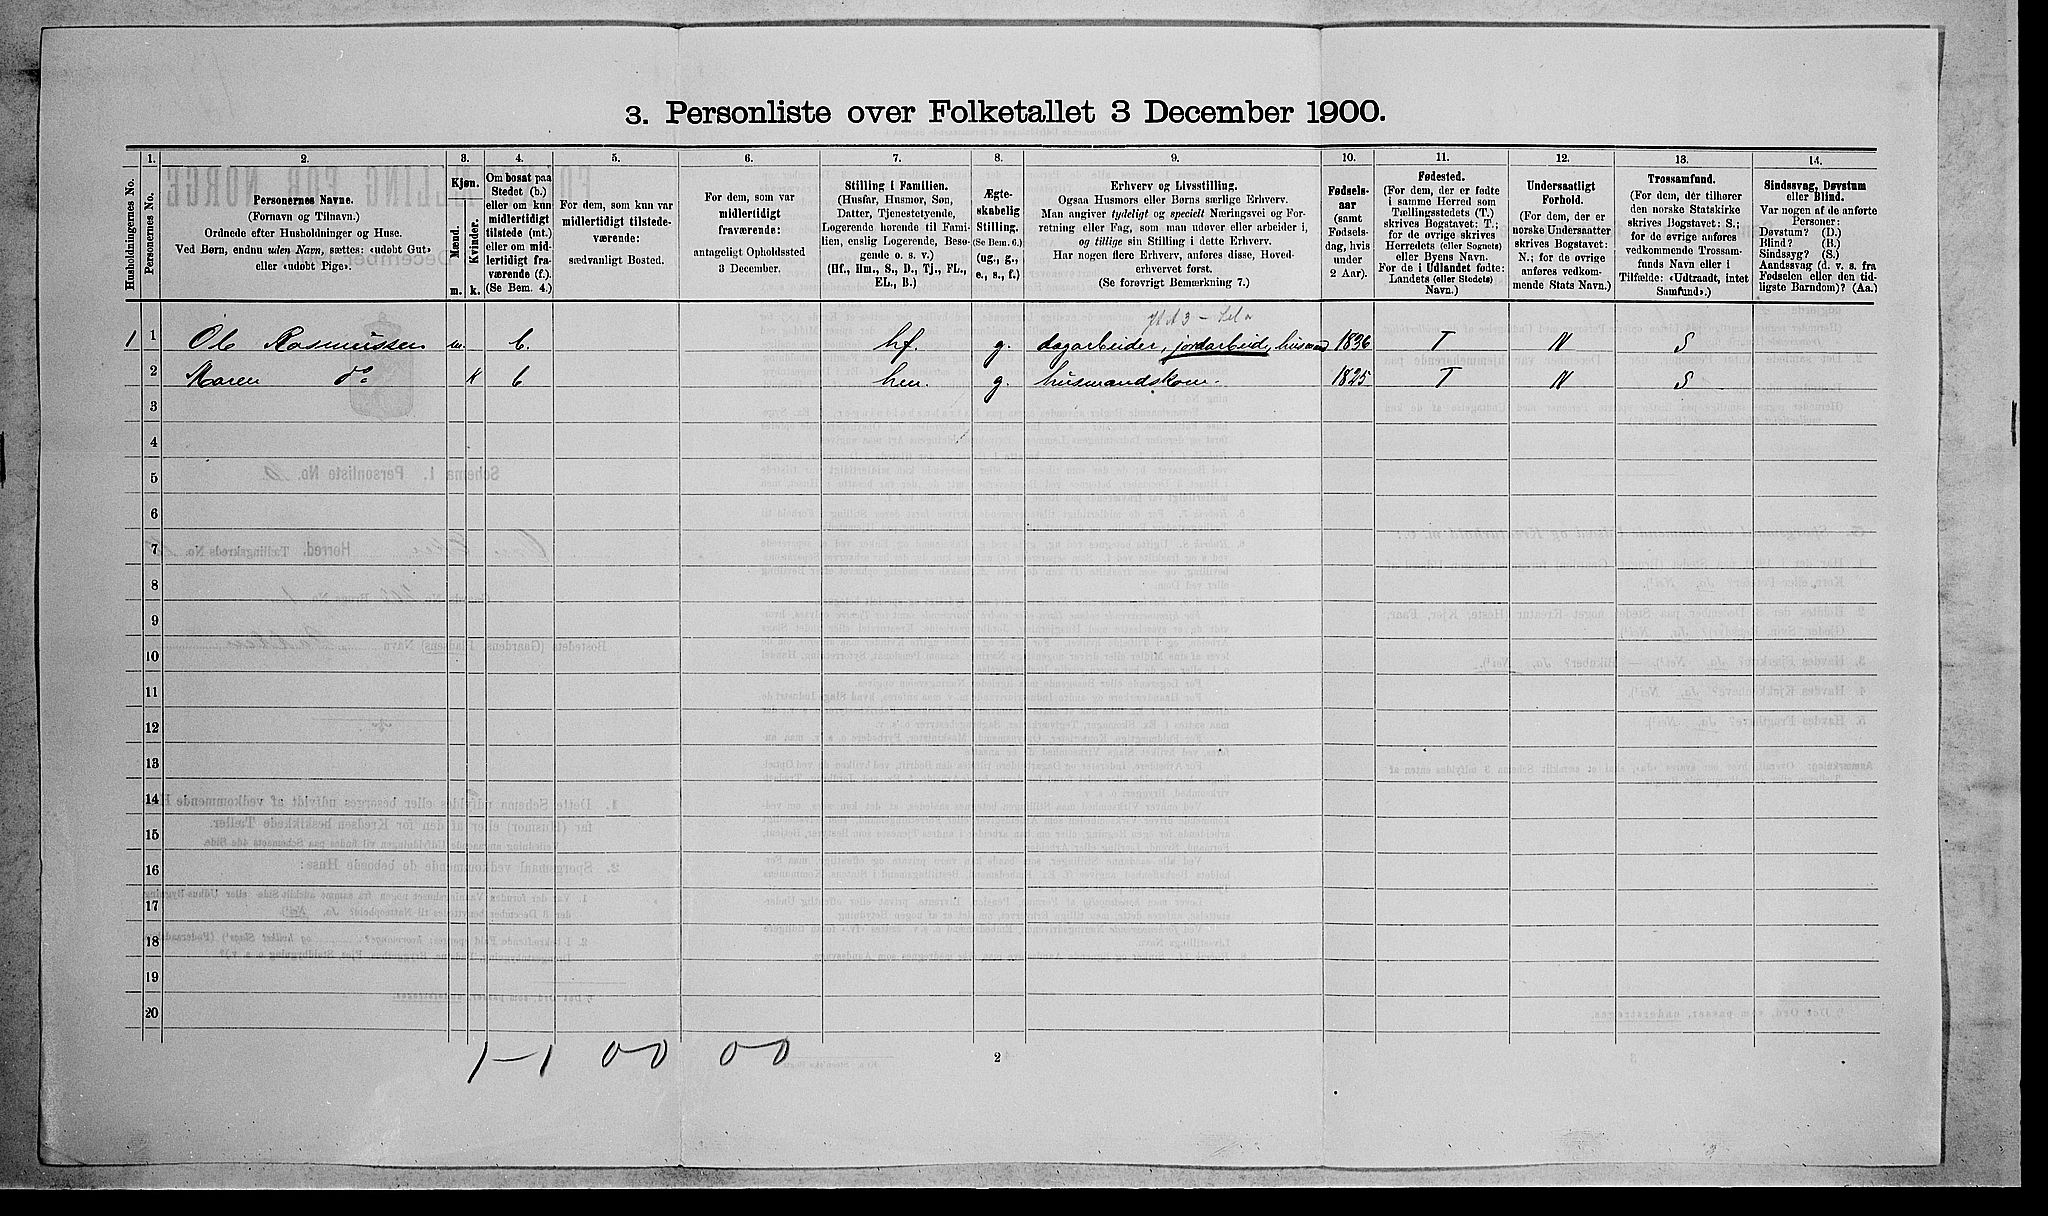 3. Personliste over Folketallet 3 December 1900.
Husholdningernes No.
1.
Personernes No.
2.
Personernes Navne.
(Fornavn og Tilnavn.)
Ordnede efter Husholdninger og Huse.
Ved Børn, endnu uden Navn, sættes: «udobt Gut»
eller «udobt Pige».
3.
Kjøn.
Mænd.
Kvinder.
m.
k.
4.
Om bosat paa
Stedet (b.)
eller om kun
midlertidigt
tilstede (mt.)
eller om mid-
lertidigt fra-
værende (f.).
(Se Bem. 4.)
5.
For dem, som kun var
midlertidigt tilstede-
værende:
sædvanligt Bosted.
6.
For dem, som var
midlertidigt
fraværende:
antageligt Opholdssted
3 December.
7.
Stilling i Familien.
(Husfar, Husmor, Søn,
Datter, Tjenestetyende,
Logerende hørende til Fami-
lien, enslig Logerende, Besø-
gende o. s. v.)
(Hf., Hm., S., D., Tj., FL.,
EL., B.)
8.
Ægte-
skabelig
Stilling.
(Se Bem. 6.)
(ug., g.,
e., s., f.)
9.
Erhverv og Livsstilling.
Ogsaa Husmors eller Børns særlige Erhverv.
Man angiver tydeligt og specielt Næringsvei og For-
retning eller Fag, som man udøver eller arbeider i,
og tillige sin Stilling i dette Erhverv.
Har nogen flere Erhverv, anføres disse, Hoved-
erhvervet først.
(Se forøvrigt Bemærkning 7.)
10.
Fødsels-
aar
(samt
Fødsels-
dag, hvis
under
2 Aar).
11.
Fødested.
(For dem, der er fødte
i samme Herred som
Tællingsstedets (T.)
skrives Bogstavet: T.;
for de øvrige skrives
Herredets (eller Sognets)
eller Byens Navn.
For de i Udlandet fødte:
Landets (eller Stedets)
Navn.)
12.
Undersaatligt
Forhold.
(For dem, der er
norske Undersaatter
skrives Bogstavet:
N.; for de øvrige
anføres vedkom-
mende Stats Navn.)
13.
Trossamfund.
(For dem, der tilhører
den norske Statskirke
skrives Bogstavet: S.;
for de øvrige anføres
vedkommende Trossam-
funds Navn eller i
Tilfælde: «Udtraadt, intet
Samfund».)
14.
Sindssvag, Døvstum
eller Blind.
Var nogen af de anførte
Personer:
Døvstum? (D.)
Blind? (B.)
Sindssyg? (S.)
Aandssvag (d. v. s. fra
Fødselen eller den tid-
ligste Barndom)? (Aa.)
1 1 Ole Rasmussen m. b. hf. g. dagarbeider, jordarbeid, husmand 1836 T N S
2 Maren do k b hm. g. husmandskone. 1825 T N S
3
4
5
6
7
8
9
10
11
12
13
14
15
16
17
18
19
20
1-1 00 00
2